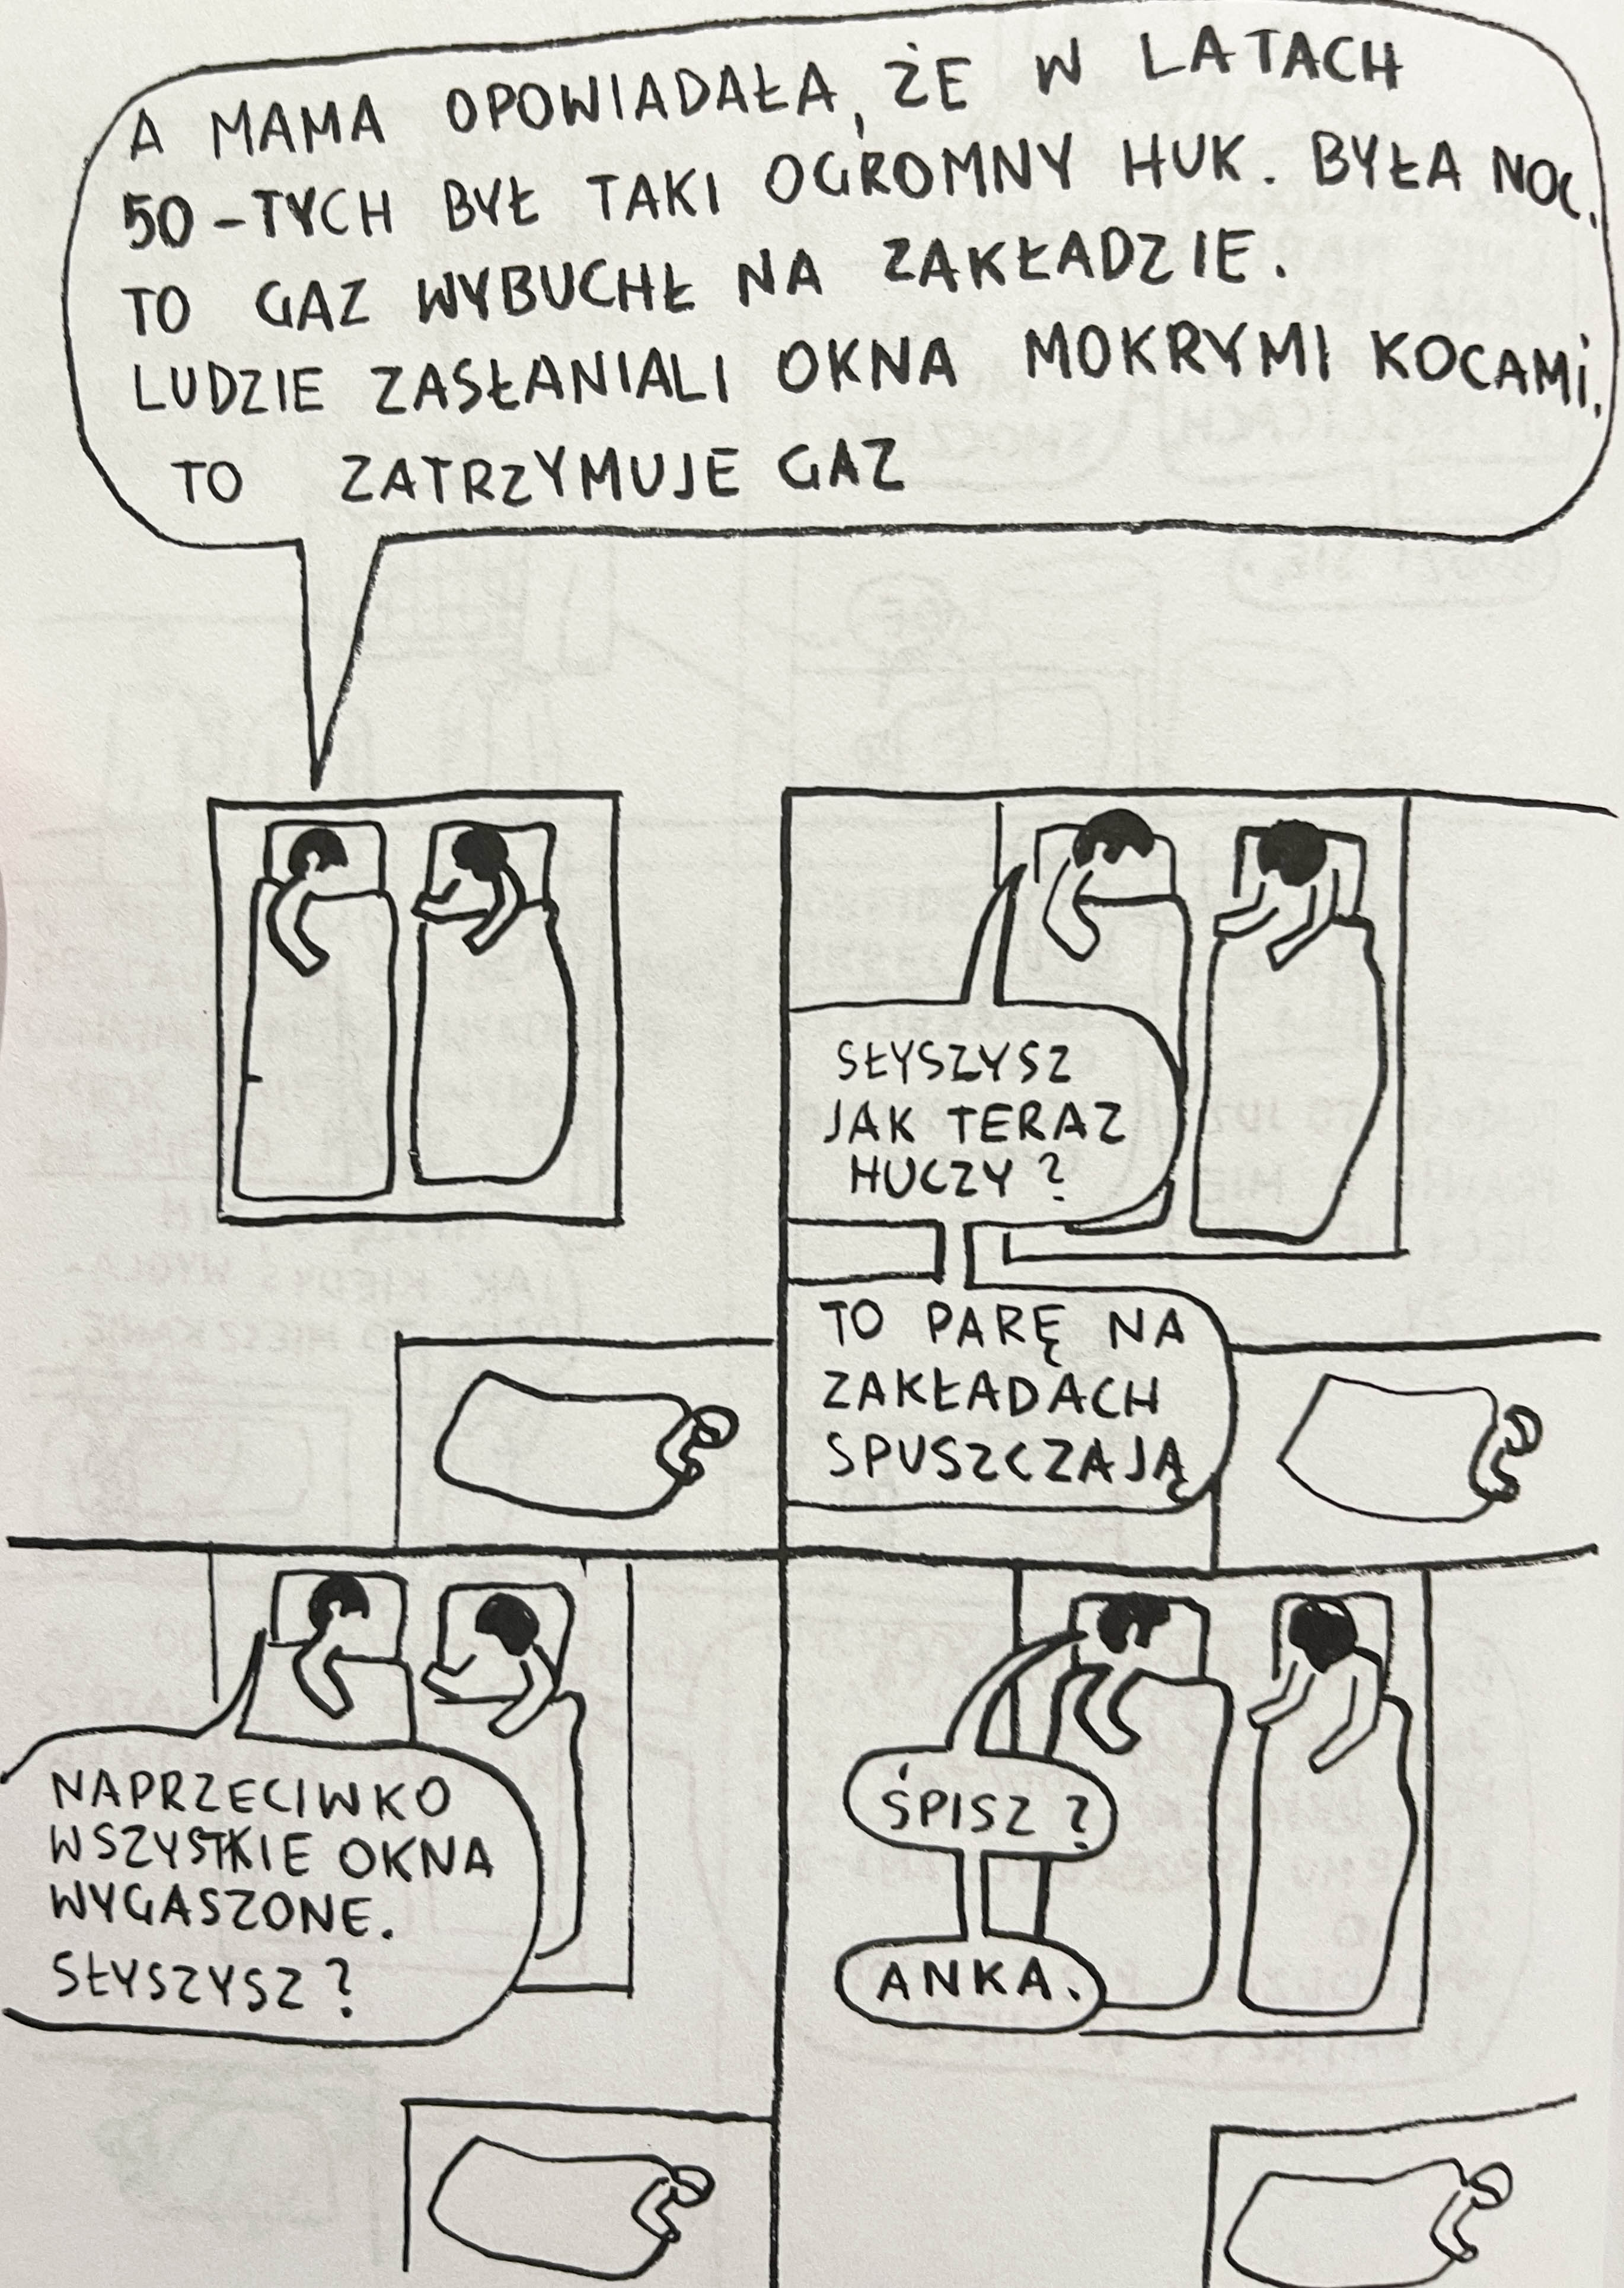 A MAMA OPOWIADAŁA, ŻE W LATACH
50-TYCH BYŁ TAKI OGROMNY HUK. BYŁA NOC.
TO GAZ WYBUCHŁ NA ZAKŁADZIE.
LUDZIE ZASŁANIALI OKNA MOKRYMI KOCAMI.
TO ZATRZYMUJE GAZ
SŁYSZYSZ
JAK TERAZ
HUCZY?
TO PARĘ NA
ZAKŁADACH
SPUSZCZAJĄ
NAPRZECIWKO
WSZYSTKIE OKNA
WYGASZONE.
SŁYSZYSZ?
ŚPISZ?
ANKA.